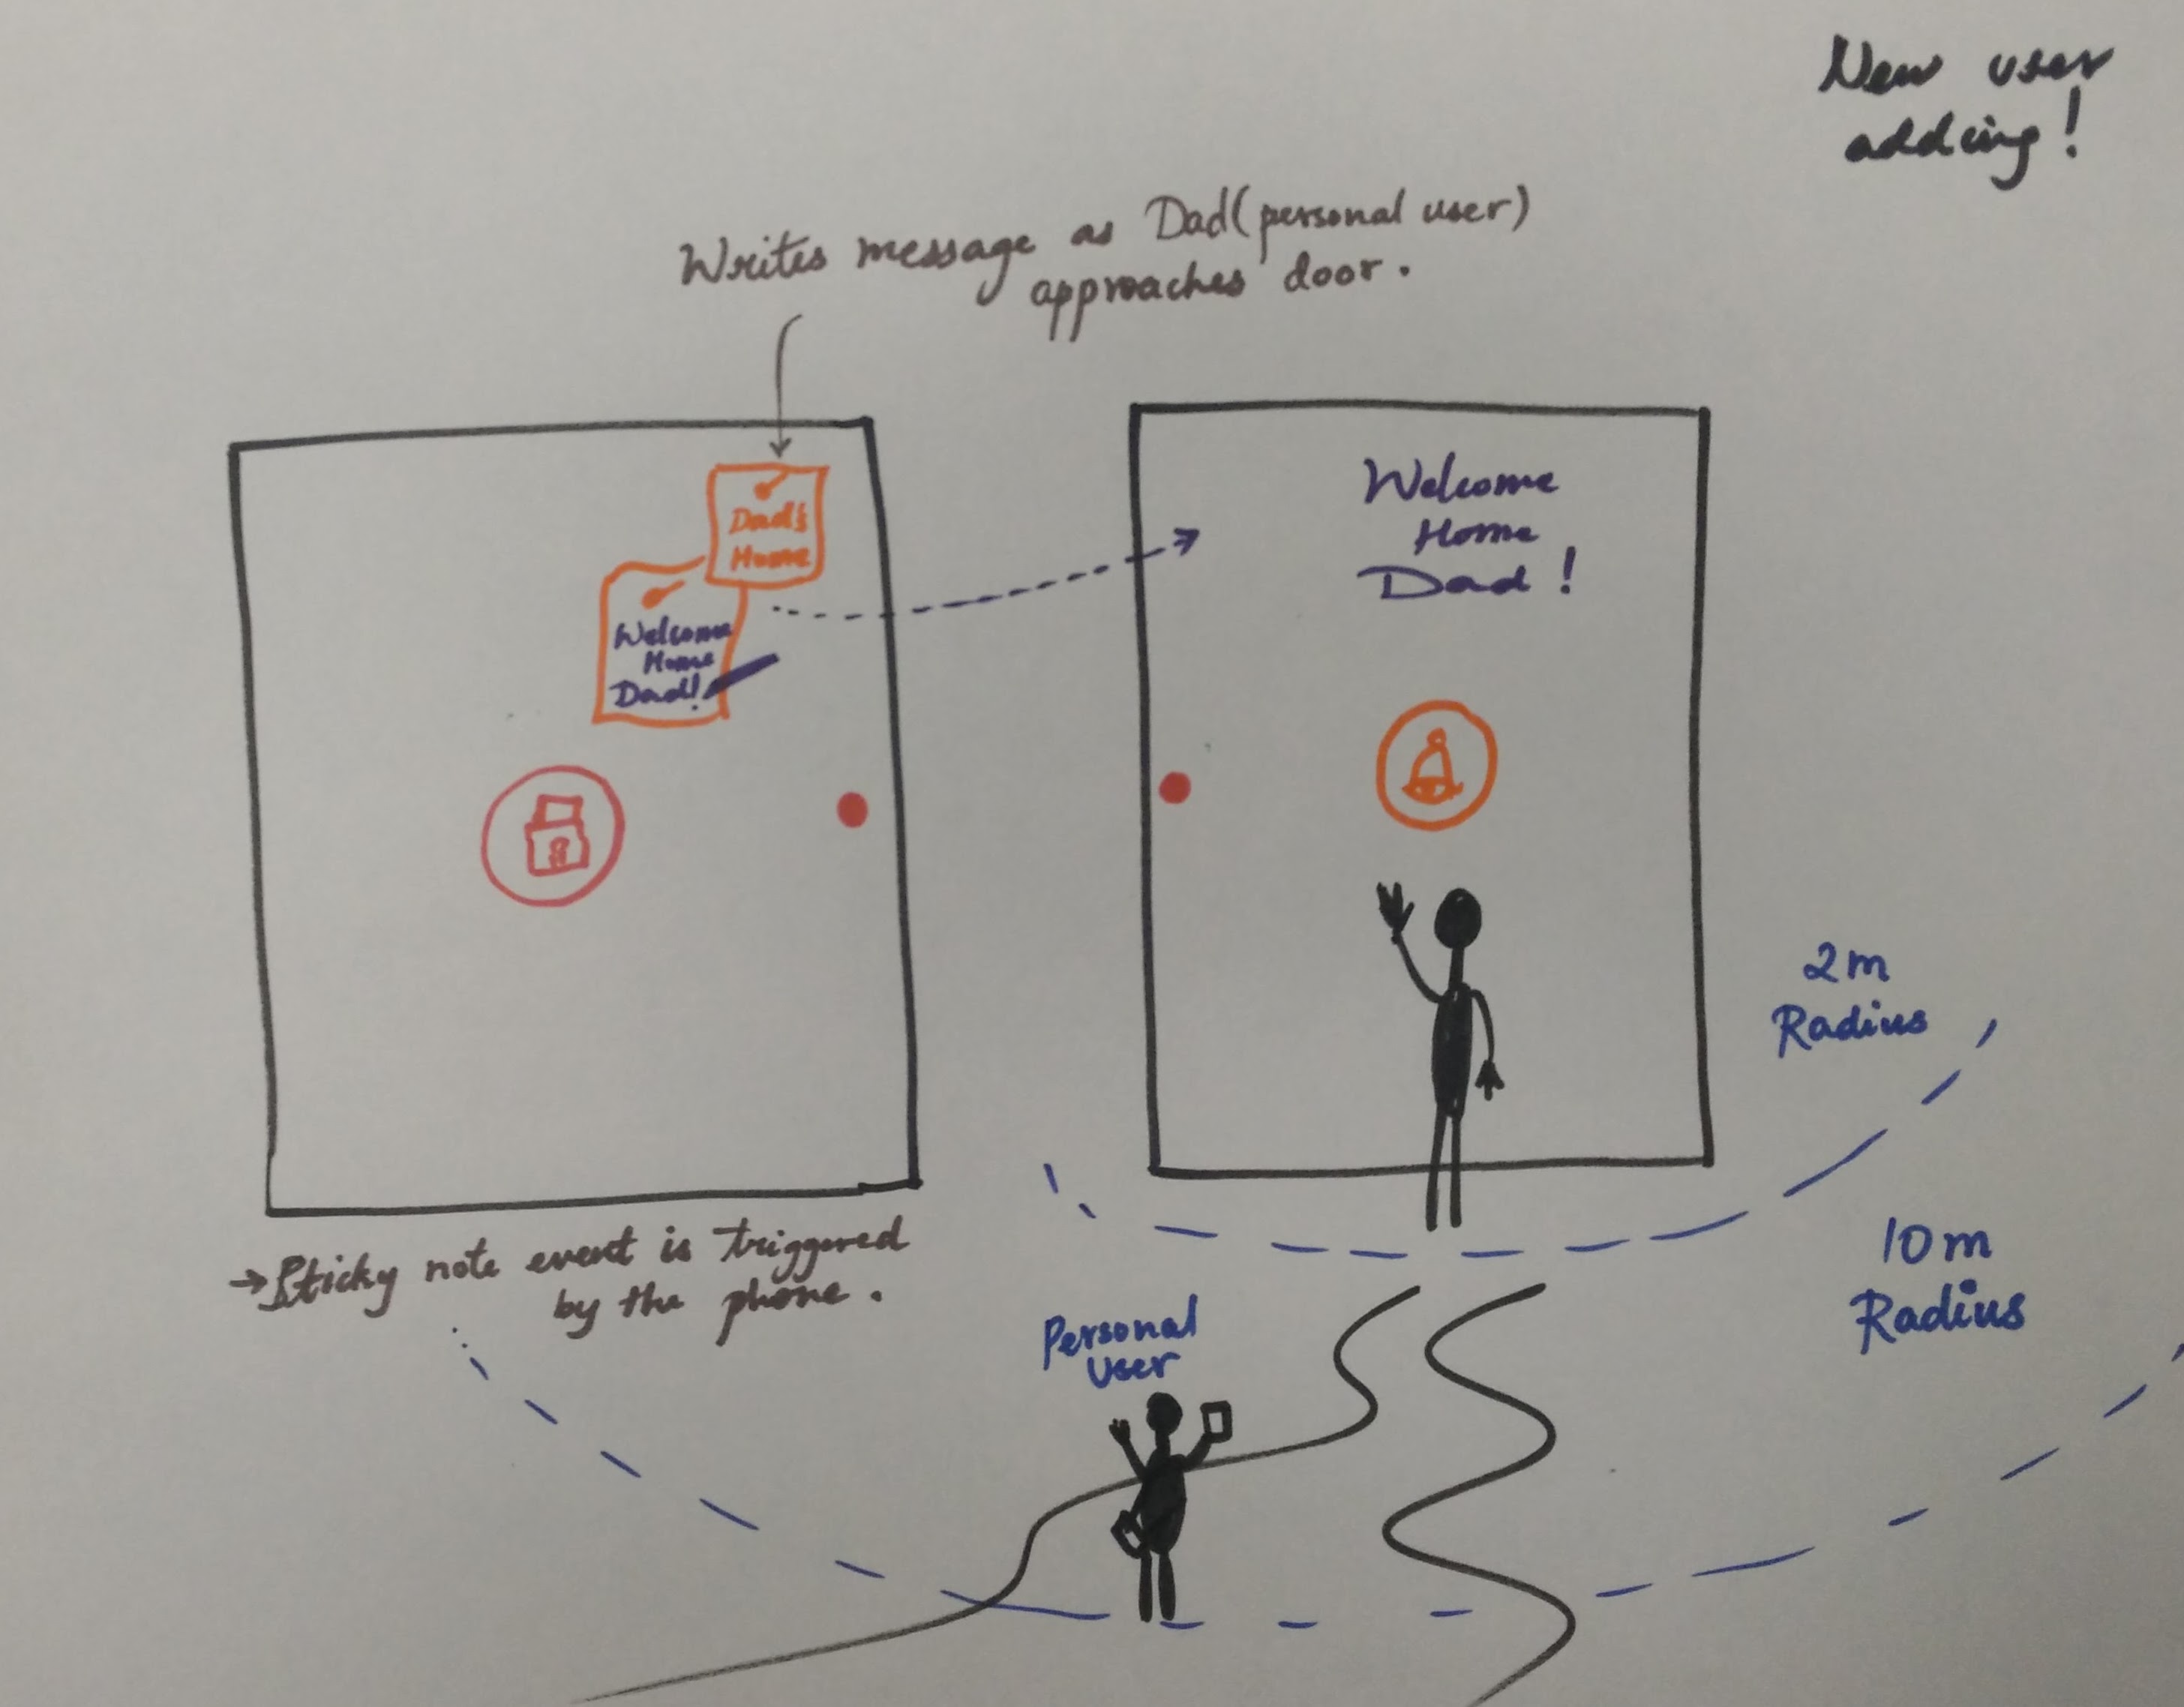 New user
adding!
Writes message as Dad(personal user)
approaches door.
Dad's
Home
Welcome
Home
Dad!
Welcome
Home
Dad!
2m
Radius
→Sticky note event is triggered
by the phone.
10m
Radius
Personal
User